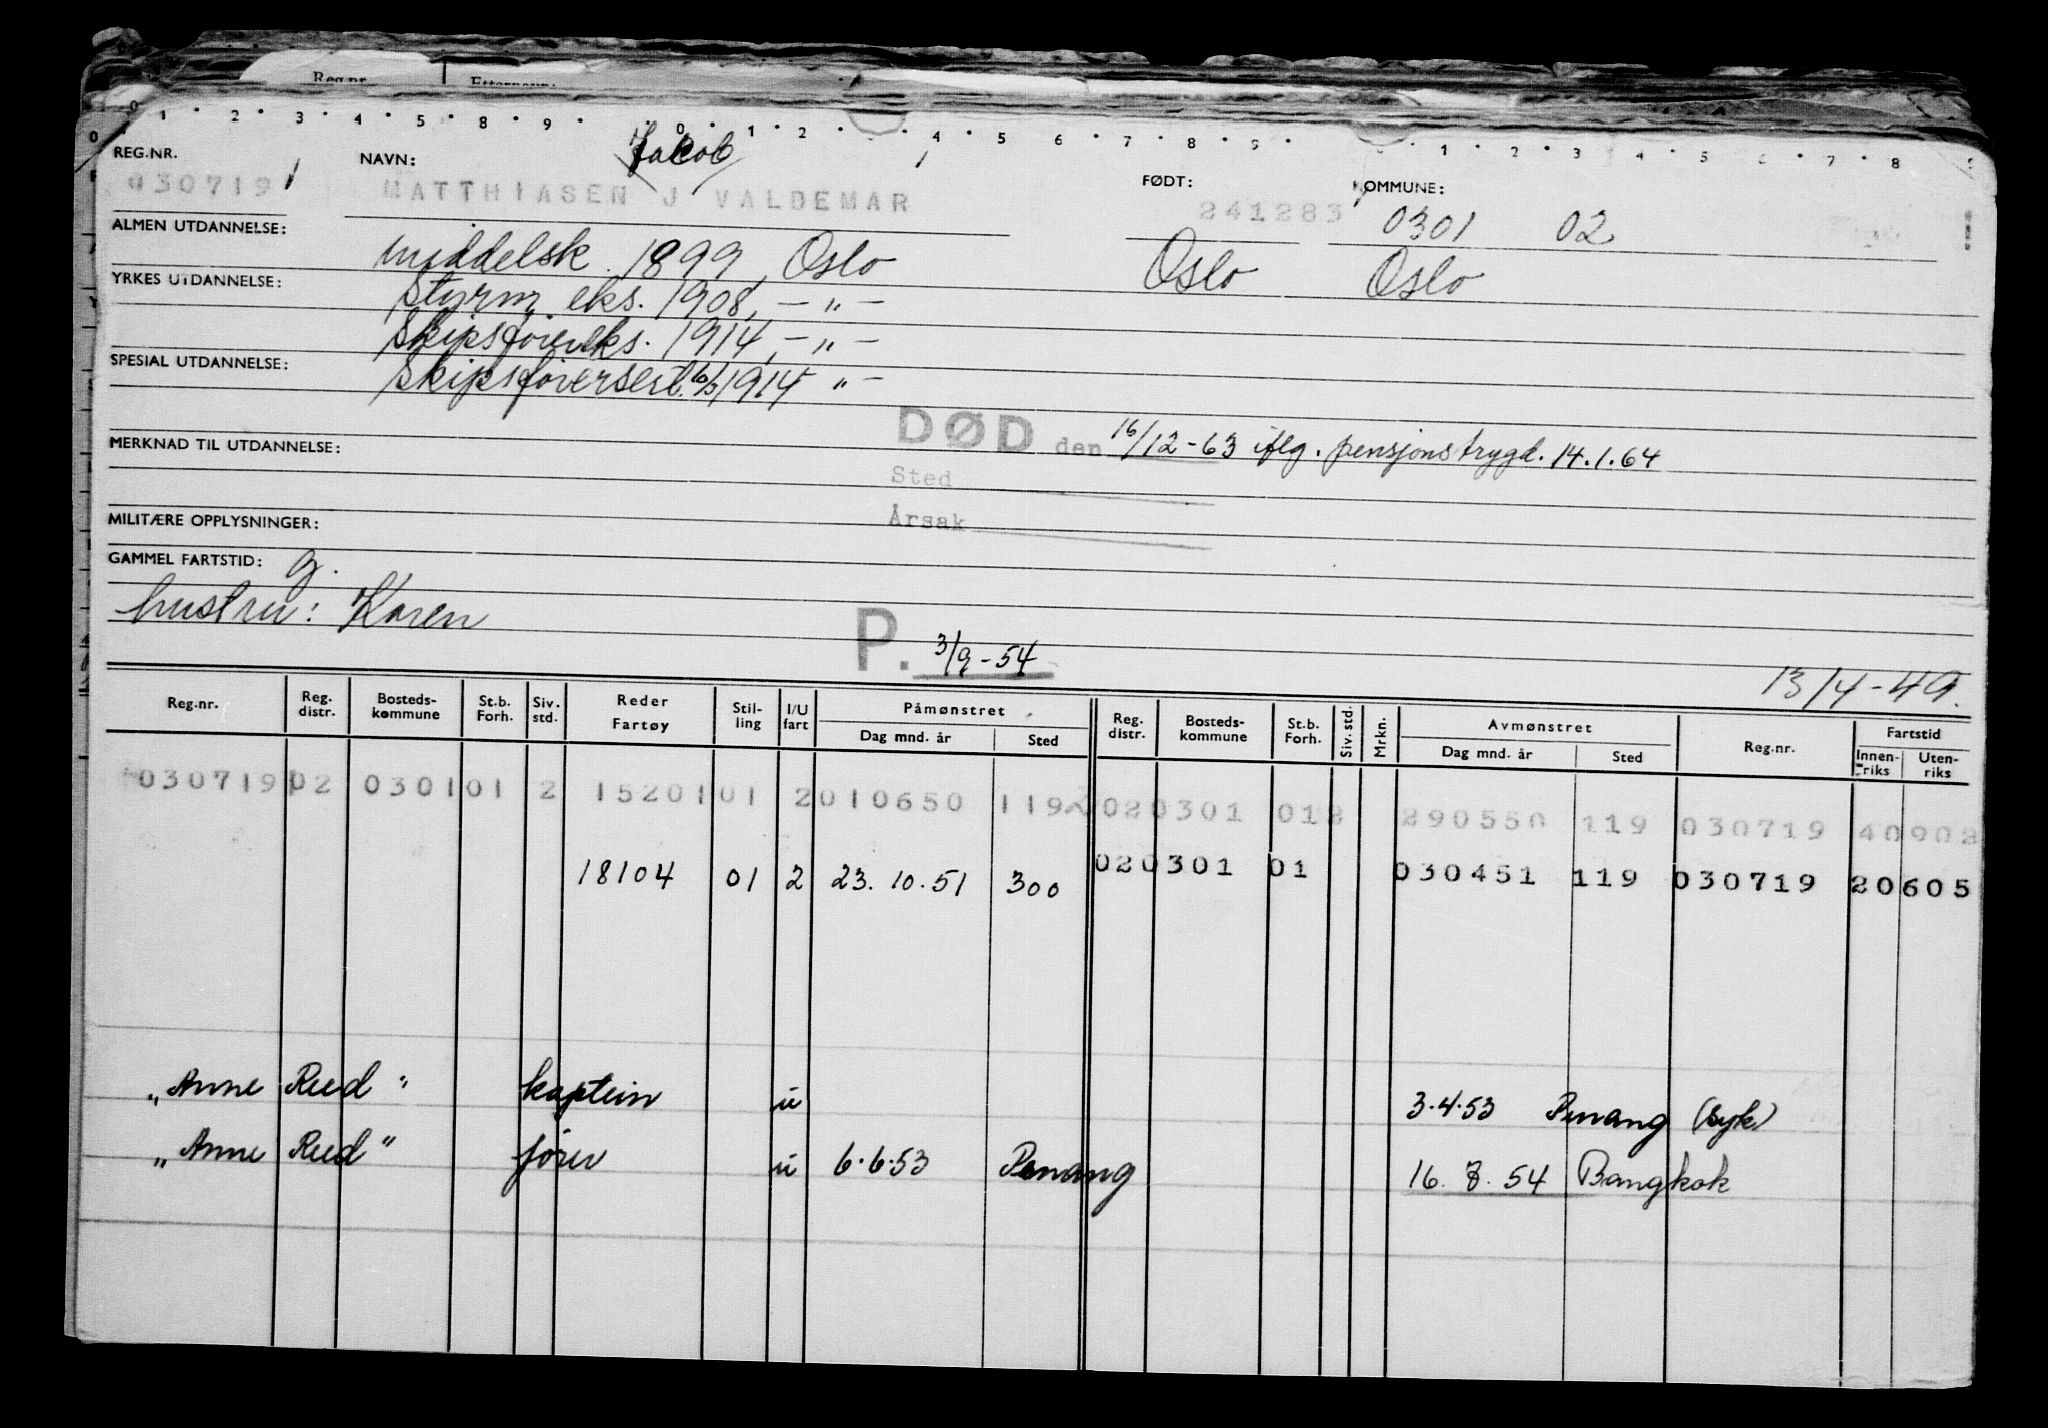 Reg.nr. Etternavn:
0 1 2 3 4 5 8 9 0 1 2 4 5 6 7 8 9 1 2 3 4 5 6 7 8
REG.NR. NAVN: Jacob FØDT: KOMMUNE:
030719 1 MATTHIASEN J VALDEMAR 241283 0301 02
ALMEN UTDANNELSE: Middelsk. 1899, Oslo Oslo Oslo
YRKES UTDANNELSE: Styrm. eks. 1908, – " –
Skipsførereks. 1914, – " –
SPESIAL UTDANNELSE: Skipsførersert. 1914 " –
MERKNAD TIL UTDANNELSE: DØD den 16/12-63 iflg. pensjonstrygd. 14.1.64
Sted
Årsak
MILITÆRE OPPLYSNINGER:
GAMMEL FARTSTID: g.
hustru: Karen
P. 3/9-54
13/4-49.
Reg.nr. Reg. distr. Bosteds-kommune St.b. Forh. Siv. std. Reder Fartøy Stil-ling I/U fart Påmønstret Dag mnd. år Sted Reg. distr. Bosteds-kommune St.b. Forh. Siv. std. Mrkn. Avmønstret Dag mnd. år Sted Reg.nr. Fartstid Innen-riks Uten-riks
030719 02 0301 01 2 15201 01 2 010650 119 02 0301 01 2 290550 119 030719 40902
18104 01 2 23.10.51 300 02 0301 01 030451 119 030719 20605
„Anne Reed" kaptein u 3.4.53 Penang (syk)
„Anne Reed" fører u 6.6.53 Penang 16.8.54 Bangkok